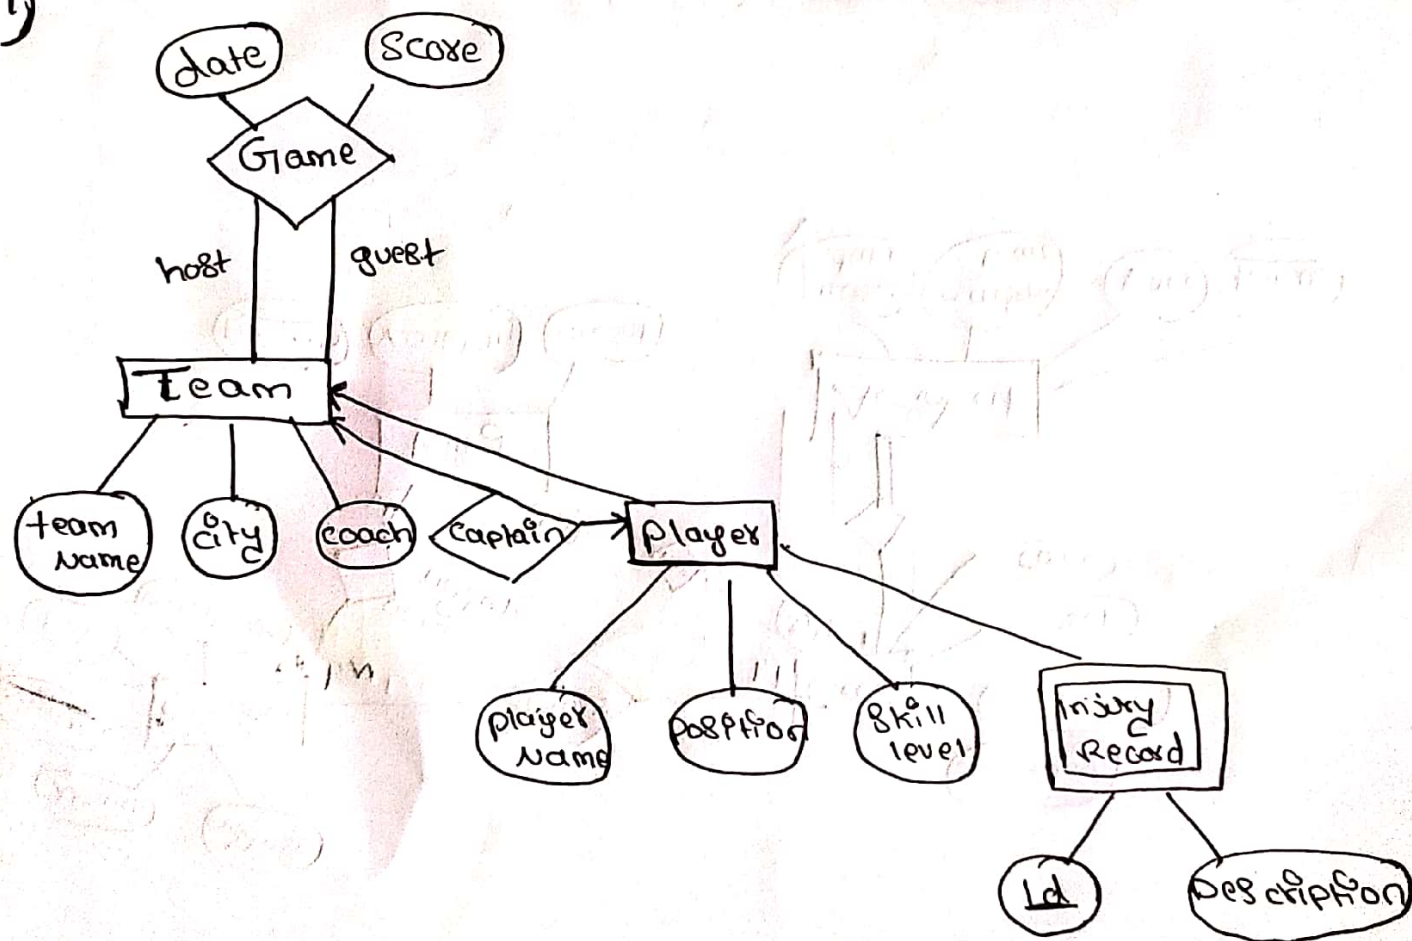 1)
date
Score
Game
host
guest
Team
team
Name
city
coach
captain
player
player
Name
position
Skill
level
Injury
Record
Id
Description